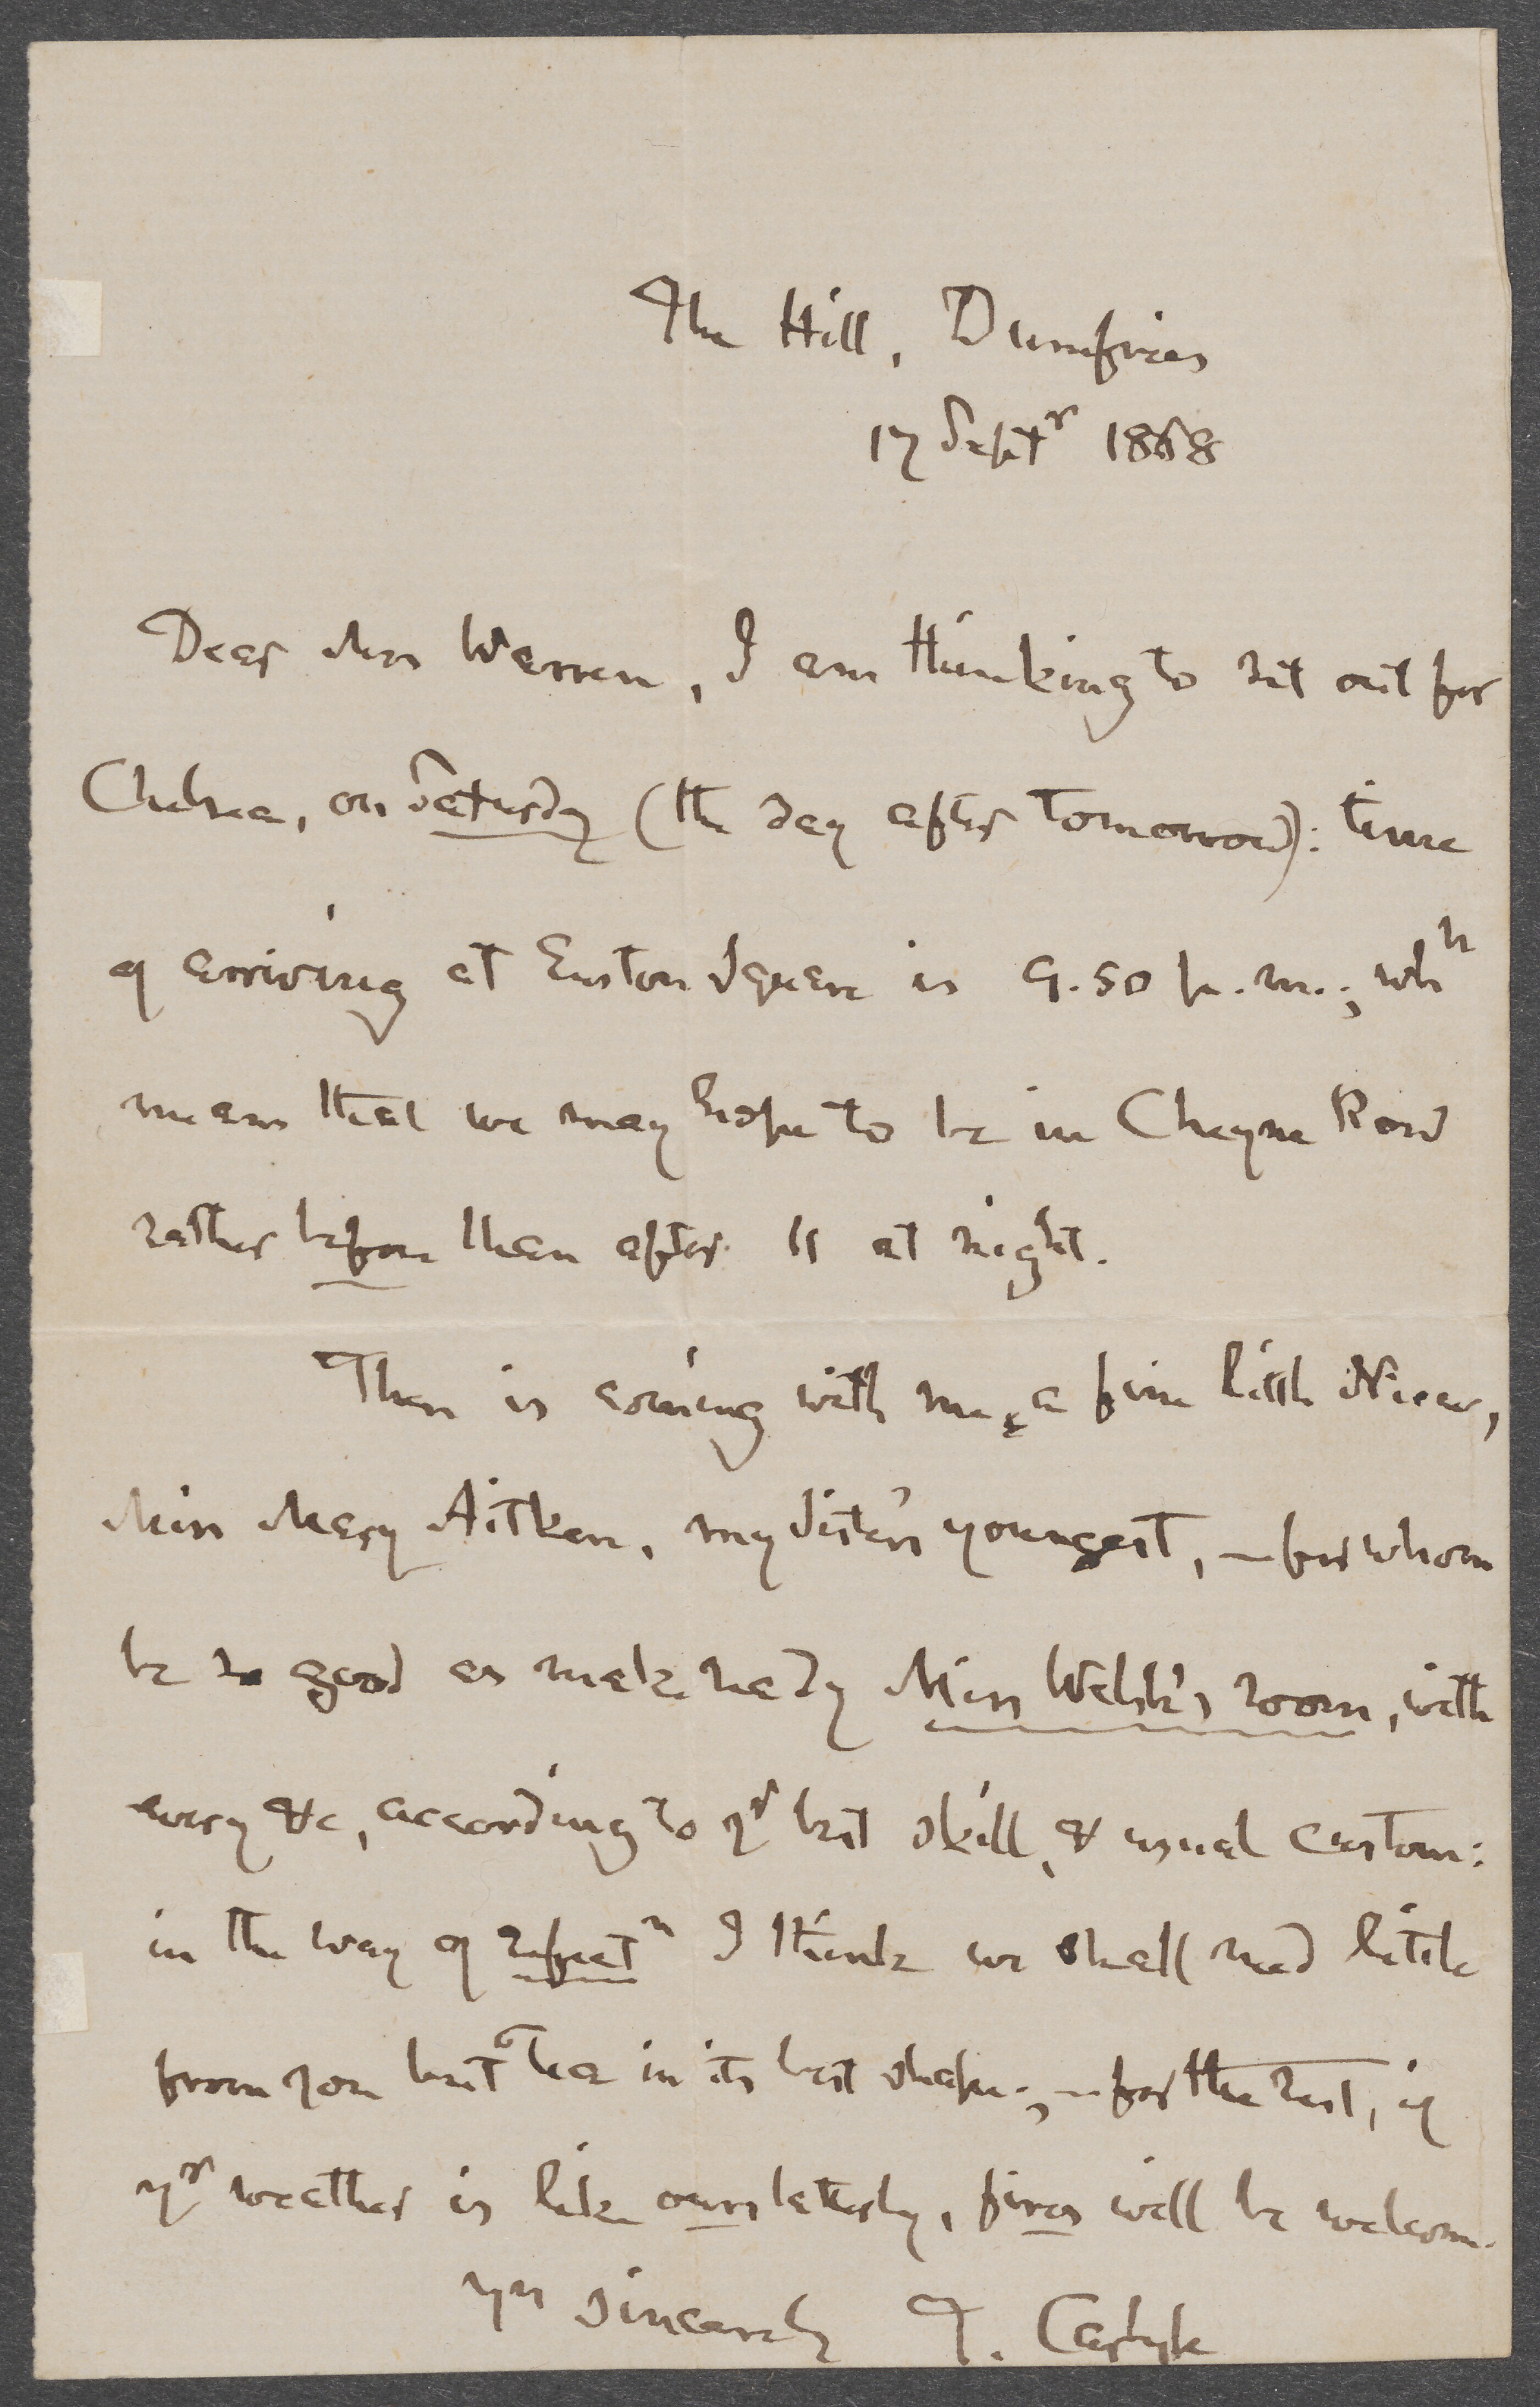 The Hill, Dumfries
17 Septr 1868
Dear Mrs Warren, I am thinking to set out for
Chelsea, on Saturdy (the day after tomorrow): time
of arriving at Euston Square is 9.50 p.m.; whh
means that we may hope to be in Cheyne Row
rather before than after 11 at night.
There is coming with me, a fine little Niece,
Miss Mary Aitken, my Sister's youngest, — for whom
be so good as make ready Miss Welsh's room, with
every &c, according to yr best skill, & usual custom:
in the way of refectn I think we shall need little
from you but tea in its best shape; — for the rest, if
yr weather is like ours latterly, fires will be welcome.
Yrs sincerely T. Carlyle